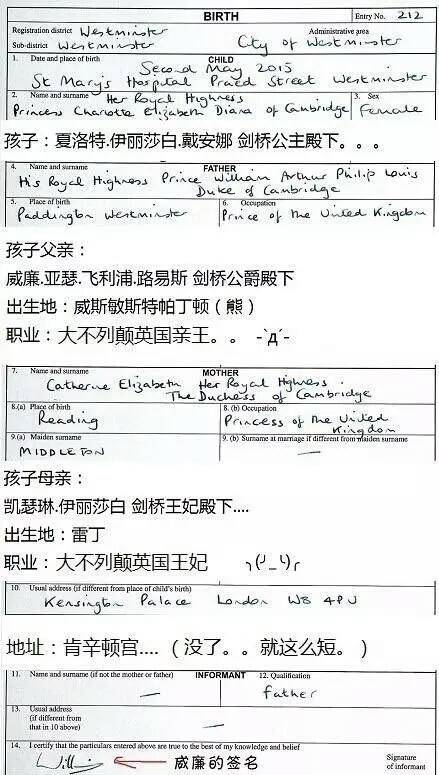 BIRTH
Entry No. 212
Registration district Westminster
Administrative area
Sub-district Westminster
City of Westminster
1. Date and place of birth
CHILD
Second May 2015
St Mary's Hospital Praed Street Westminster
2. Name and surname
3. Sex
Her Royal Highness
Princess Charlotte Elizabeth Diana of Cambridge
Female
孩子：夏洛特.伊丽莎白.戴安娜 剑桥公主殿下。。。
4. Name and surname
FATHER
His Royal Highness Prince William Arthur Philip Louis
Duke of Cambridge
5. Place of birth
6. Occupation
Paddington Westminster
Prince of the United Kingdom
孩子父亲：
威廉.亚瑟.飞利浦.路易斯 剑桥公爵殿下
出生地：威斯敏斯特帕丁顿（熊）
职业：大不列颠英国亲王。。 -`д´-
7. Name and surname
MOTHER
Catherine Elizabeth Her Royal Highness
The Duchess of Cambridge
8.(a) Place of birth
8. (b) Occupation
Reading
Princess of the United Kingdom
9.(a) Maiden surname
9. (b) Surname at marriage if different from maiden surname
MIDDLETON
—
孩子母亲：
凯瑟琳.伊丽莎白 剑桥王妃殿下....
出生地：雷丁
职业：大不列颠英国王妃 ╮(╯_╰)╭
10. Usual address (if different from place of child's birth)
Kensington Palace London W8 4PU
地址：肯辛顿宫....（没了。。就这么短。）
11. Name and surname (if not the mother or father)
INFORMANT
12. Qualification
—
Father
13. Usual address
(if different from
that in 10 above)
—
14. I certify that the particulars entered above are true to the best of my knowledge and belief
威廉的签名
Signature
of informant